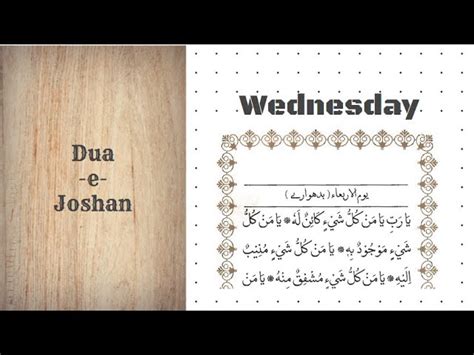 Dua
-e-
Joshan
Wednesday
يوم الاربعاء ( بدھوارے )
يَا رَبِّ يَا مَنْ كُلُّ شَيْءٍ كَائِنٌ لَهُ * يَا مَنْ كُلُّ
شَيْءٍ مَوْجُودٌ بِهِ * يَا مَنْ كُلُّ شَيْءٍ مُنِيْبٌ
اِلَيْهِ * يَا مَنْ كُلُّ شَيْءٍ مُشْفِقٌ مِنْهُ * يَا مَنْ